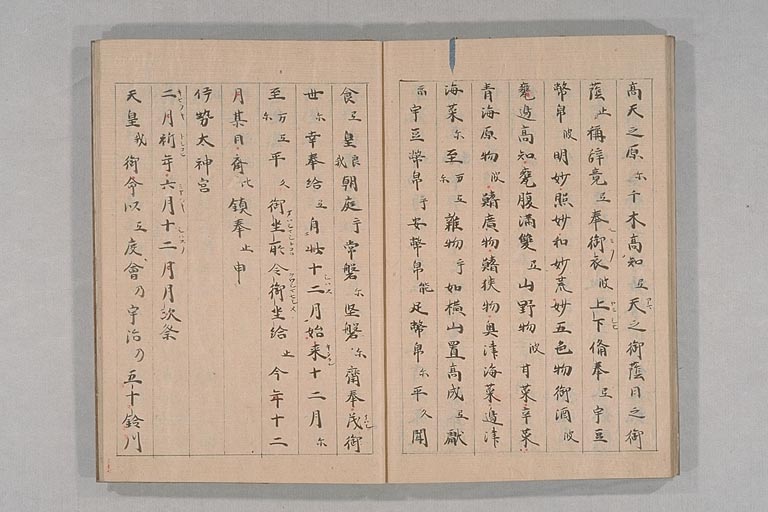 高天之原尓千木高知弖天之御蔭日之御
蔭止稱辞竟弖奉御衣波上下備奉弖宇豆
幣帛波明妙照妙和妙荒妙五色物御酒波
甕邊高知甕腹満雙弖山野物波甘菜辛菜
青海原物波鰭廣物鰭狭物奥津海菜邊津
海菜尓至万弖尓雜物乎如横山置高成弖獻
流宇豆幣帛乎安幣帛能足幣帛尓平久聞
食弖皇良我朝庭乎常磐尓堅磐尓齋奉茂御
世尓幸奉給弖自此十二月始来十二月尓
至万弖尓平久御坐所令御坐給止今年十二
月某日齊比鎮奉止申
伊勢太神宮
二月祈年六月十二月月次祭
天皇我御命以弖度會乃宇治乃五十鈴川